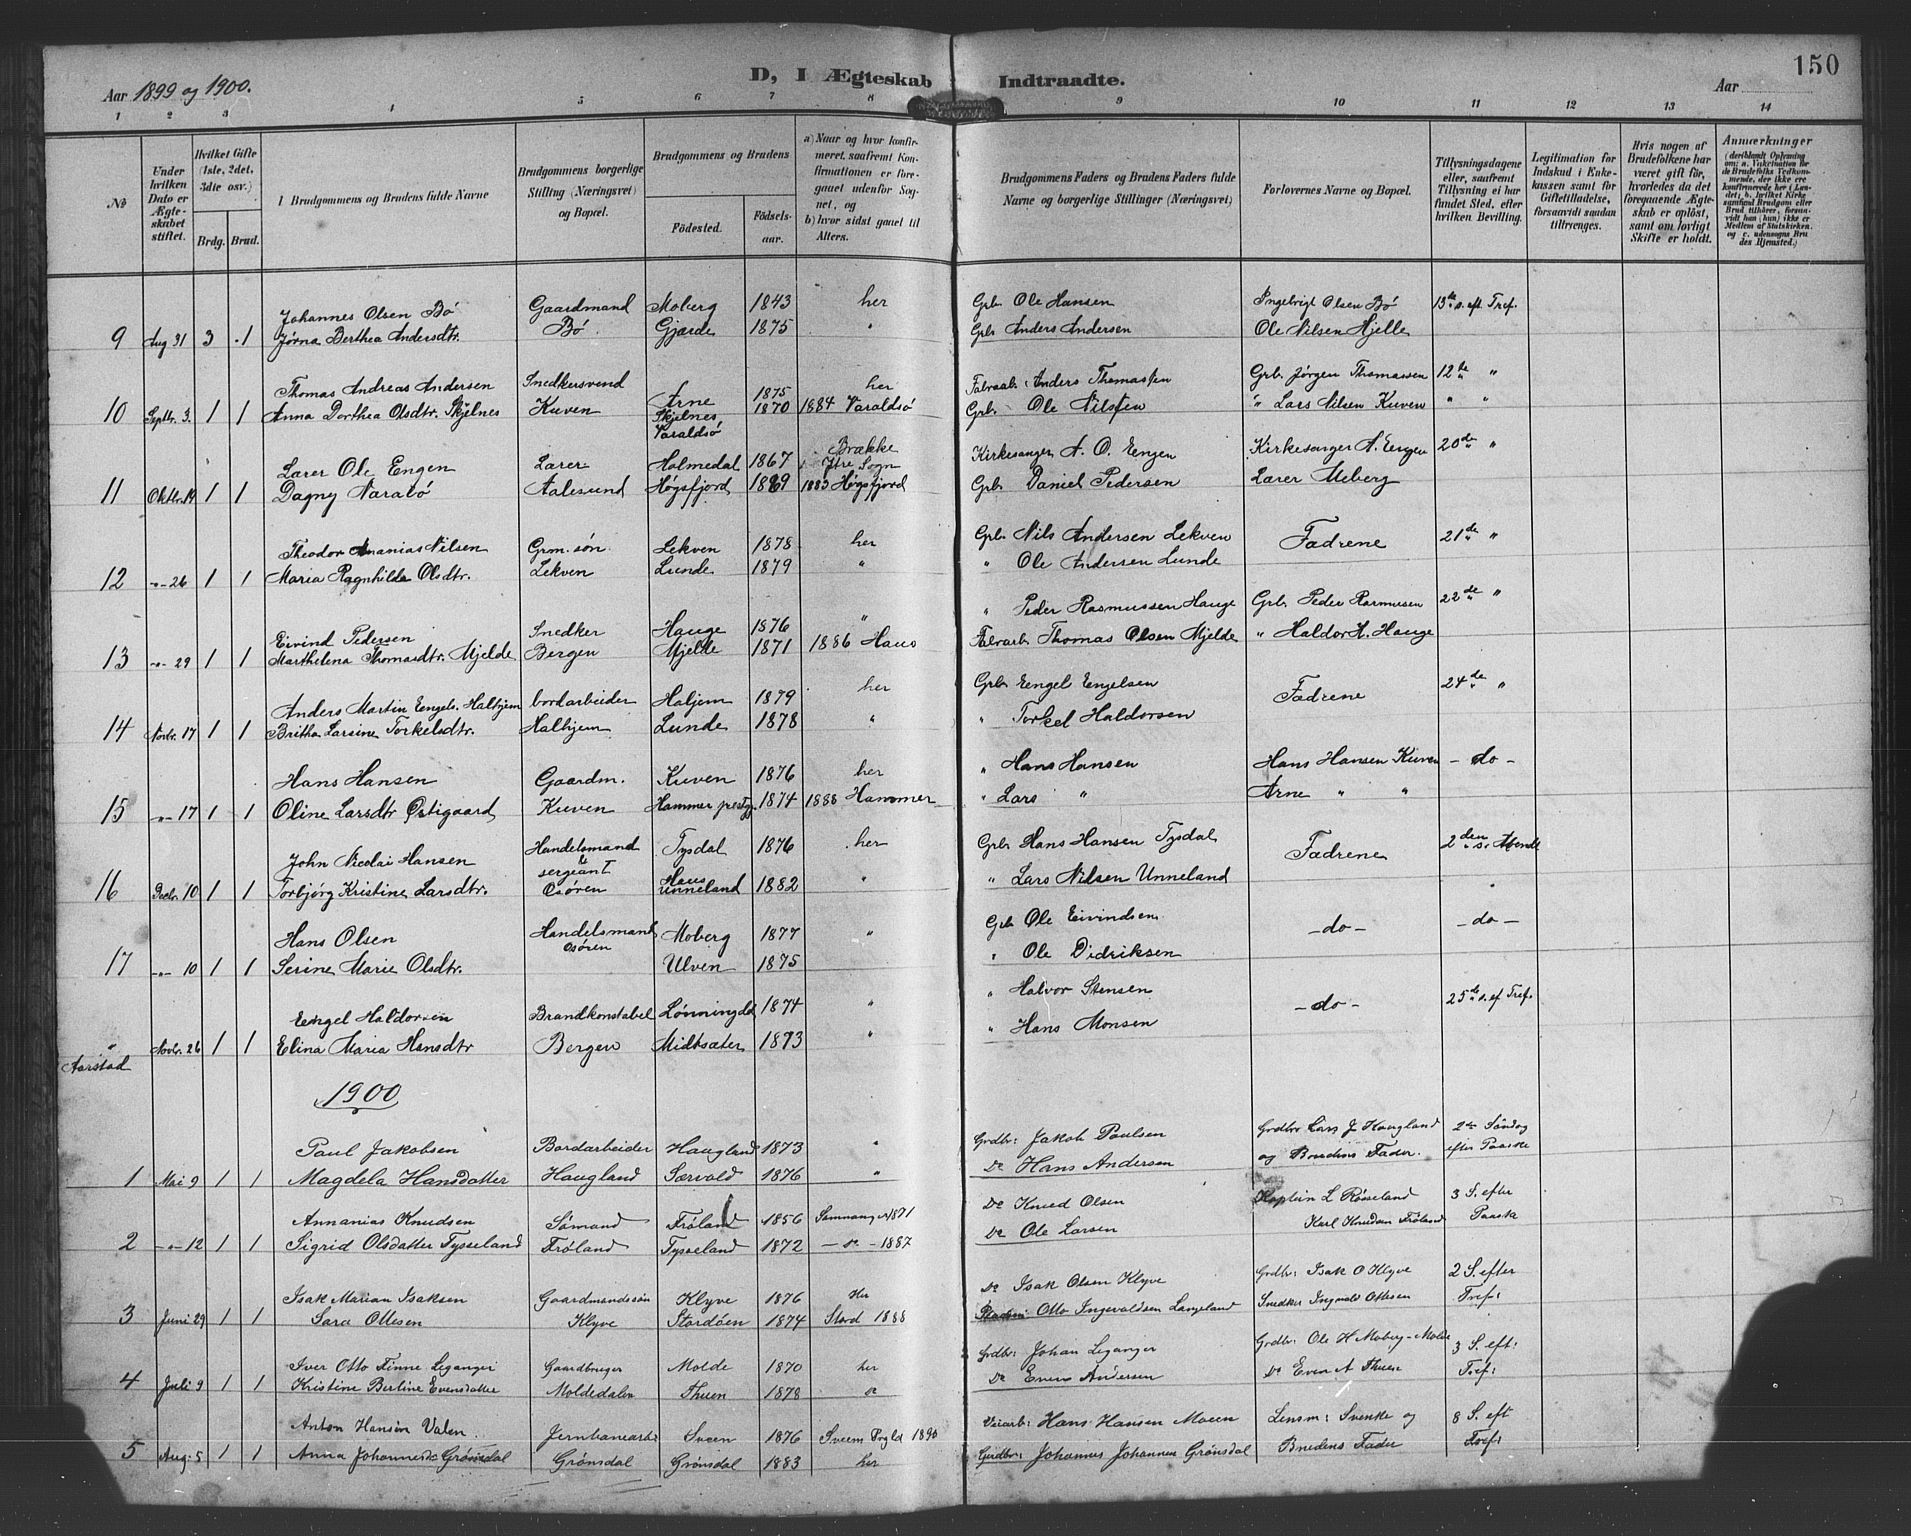 150
Aar 1899 og 1900.
D, I Ægteskab Indtraadte.
Aar
1 2 3 4 5 6 7 8 9 10 11 12 13 14
No
Under hvilken Dato er Ægteskabet stiftet.
Hvilket Gifte (1ste, 2det, 3die osv.)
Brdg. Brud.
Brudgommens og Brudens fulde Navne
Brudgommens borgerlige Stilling (Næringsvei) og Bopæl.
Brudgommens og Brudens
Fødested. Fødselsaar.
a) Naar og hvor konfirmeret, saafremt Konfirmationen er foregaaet udenfor Sognet, og
b) hvor sidst gaaet til Alters.
Brudgommens Faders og Brudens Faders fulde Navne og borgerlige Stillinger (Næringsvei)
Forlovernes Navne og Bopæl.
Tillysningsdagene eller, saafremt Tillysning ei har fundet Sted, efter hvilken Bevilling.
Legitimation for Indskud i Enkekassen samt for Giftetilladelse, forsaavidt saadan tiltrænges.
Hvis nogen af Brudefolkene har været gift før, hvorledes da det foregaaende Ægteskab er opløst, samt om lovligt Skifte er holdt.
Anmærkninger
Johannes Olsen Bø Gaardmand Moberg 1843 her Grb. Ole Hansen Ingebrigt Olsen Bø 13de s. eft Tref.
9 Aug 31 3 1 Jørna Berthea Andersdtr. Bø. Gjærde 1875 " Grb. Anders Andersen Ole Nilsen Hjelle
Thomas Andreas Andersen Snedkersvend Arne 1875 her Anders Thomassen Grb. Jørgen Thomassen 12te " "
10 Septbr. 3. 1 1 Anna Dorthea Olsdtr. Skjelnes Kuven Skjelnes Varaldsø 1870 1884 Varaldsø Grb. Ole Nilssen " Lars Nilsen Kuven " "
Lærer Ole Engen Lærer Holmedal 1867 Brække Ytre Sogn Kirkesanger A. O. Engen Kirkesanger A. Engen 20de "
11 Oktbr. 14 1 1 Dagny Aalesund Høgsfjord 1869 1883 Høgsfjord Grb. Daniel Pedersen Lærer Meberg
Theodor Ananias Nilsen Grm. søn. Lekven 1878 her Grb. Nils Andersen Lekven Fædrene 21de "
12 -"- 26 1 1 Maria Ragnhilda Olsdtr. Lekven Lunde 1879 " " Ole Andersen Lunde
Eivind Pedersen Snedker Hauge 1876 " " Peder Rasmussen Hauge Grb. Peder Rasmusen 22de "
13 -"- 29 1 1 Marthelena Thomasdtr. Mjelde Bergen Mjelde 1871 1886 Haus Thomas Olsen Mjelde " Haldor H. Hauge
Anders Martin Engels. Halhjem bordarbeider Haljem 1879 her Grb. Engel Engelsen Fædrene 24de "
14 Novbr. 17 1 1 Britha Larsine Torkelsdtr. Halhjem Lunde 1878 " " Torkel Haldorsen
Hans Hansen Gaardm. Kuven 1876 her " Hans Hansen Hans Hansen Kuven - do -
15 -"- 17 1 1 Oline Larsdtr Østigaard Kuven Hammer prestgj. 1874 1888 Hammer " Lars " Arne " "
John Nicolai Hansen Handelsmand & sergeant Tysdal 1876 her Grb. Hans Hansen Tysdal Fædrene 2den s. i Advende
16 Decbr. 10 1 1 Torbjørg Kristine Larsdtr. Osøren Haus Unneland 1882 " " Lars Nilsen Unneland "
Hans Olsen Handelsmand Osøren Moberg 1877 " Grb Ole Eivindsen - do - - do -
17 -"- 10 1 1 Serine Marie Olsdtr. Ulven 1875 " Ole Didriksen
Engel Haldorsen Brandkonstabel Lønningdal 1874 " " Halvor Stensen - do - 25de s. ef Tref.
" Aarstad Novbr. 26 1 1 Elina Maria Hansdtr Bergen Midtsæter 1873 " " Hans Monsen
1900
Paul Jakobsen Bordarbeider Haugland 1873 " Grdbr: Jakob Paulsen Grdbr Lars J Haugland 2den Søndag
1 Mai 9 1 1 Magdela Hansdatter Haugland Særvold 1876 " Do Hans Andersen og Brudens Fader. efter Paaske
Annanias Knudsen Sømand Frøland 1856 Samnanger 1871 Do Knud Olsen Kaptein L Røseland 3 S. efter
2 -"- 12 1 1 Sigrid Olsdatter Tysseland Frøland Tysseland 1872 - do - 1887 Do Ole Larsen Karl Knudsen Frøland Paaske
Isak Marian Isaksen Gaardmandssøn Klyve 1876 Her Do Isak Olsen Klyve Grdbr: Isak O Klyve 2 S. efter
3 Juni 29 1 1 Sara Ottesen Klyve Stordøen 1874 Stord 1888 Otto Ingevaldsen Langeland Snedker Ingvald Ottesen Tref:
Iver Otto Finne Leganger Gaardbruger Molde 1870 her Grdbr: Johan Leganger Grdbr: Ole H Moberg - Molde 3 S. eft:
4 Juli 9 1 1 Kristine Berline Evensdatter Moldedalen Thuen 1878 do Do Even Andersen Do Even A Thuen Tref:
Anton Hansen Valen. Jernbanearbr Sveen 1876 Sveem Prgld 1890 Veiarb: Hans Hansen Moen Lensm: Svenke og 8 S. eft
5 Aug: 5 1 1 Anna Johannesdr Grønsdal Grønsdal Grønsdal 1883 her Gardbr: Johannes Johannesen Grønsdal Brudens Fader Tref: